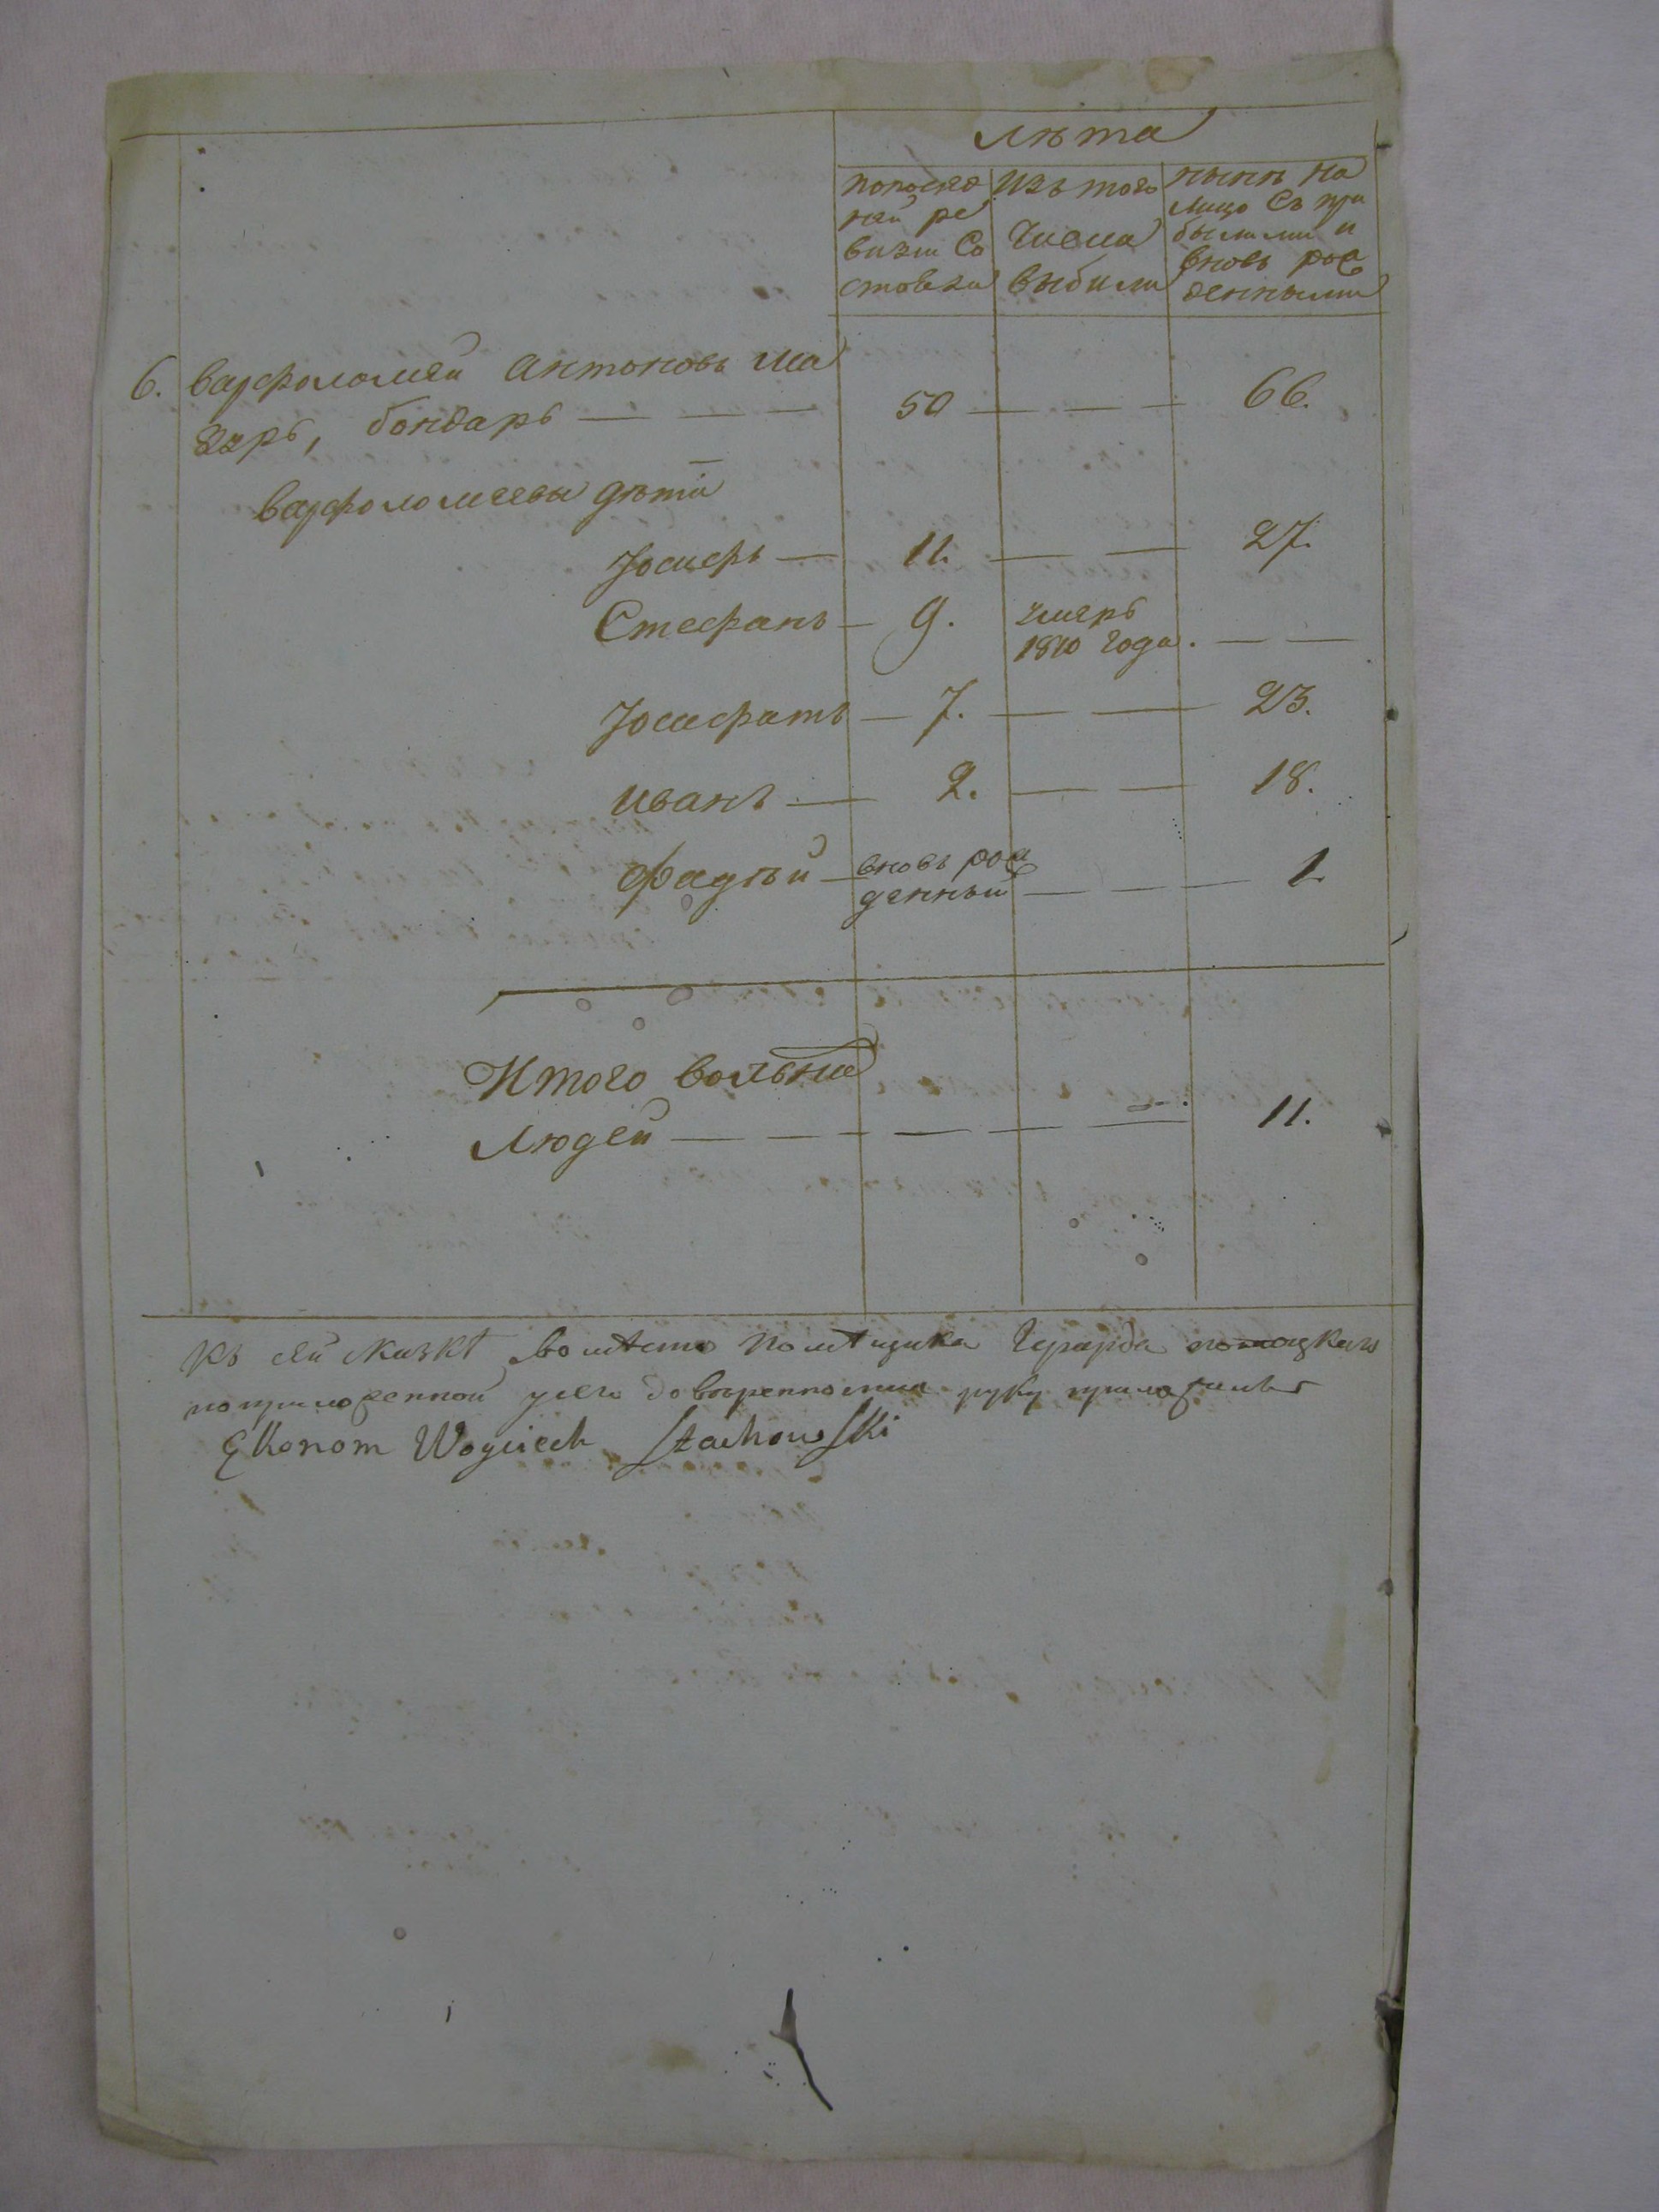 лѣта
по послед
ней ре
визии со
стояли
изъ того
числа
выбили
нынѣ на
лицо съ при
былыми и
вновь рож
денными
6. варфоломей Антоновъ ма
зуръ, бондарь — — — 50 — — — 66.
варфоломеевы дѣти
Іосифъ — 11. — — 27.
Стефанъ — 9. умеръ
1810 года. — —
Іосафатъ — 7. — — 23.
иванъ — 2. — — 18.
Фадѣй — вновь рож
денный — — — 1
Итого вольны
людей — — — — — — 11.
къ сей скаскѣ вомѣсто помѣщика Герарда
по приложенной у сего довѣренности руку приложилъ
Ekonom Woyciech Stachowski